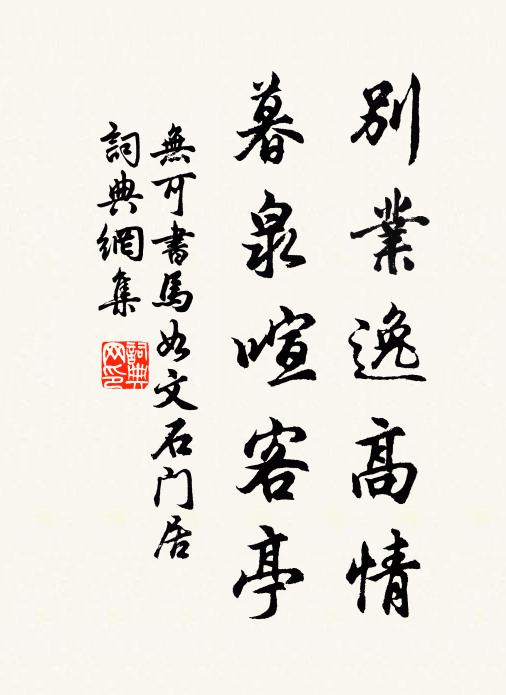 別業逸高情
暮泉喧客亭
無可書馬如文石门居
詞典網集
詞典网印